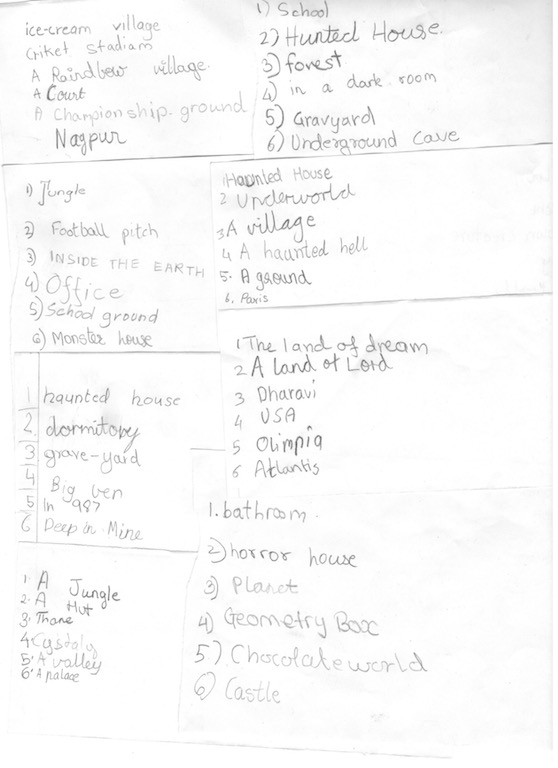 ice-cream village
Criket Stadiam
A Raindbew village.
A Court
A Championship. ground
Nagpur
1) School
2) Hunted House.
3) forest
4) in a dark room
5) Gravyard
6) Underground Cave
1) Jungle
2) Football pitch
3) INSIDE THE EARTH
4) Office
5) School ground
6) Monster house
1 Haunted House
2 Underworld
3 A village
4 A haunted hell
5. A ground
6. Paris
1 The land of dream
2 A land of Lord
3 Dharavi
4 USA
5 Olimpia
6 Atlantis
1 haunted house
2. dormitory
3 grave-yard
4 Big ben
5 In 987
6 Deep in Mine
1. bathroom.
2) horror house
3) Planet
4) Geometry Box
5) Chocolate world
6) Castle
1. A Jungle
2. A Hut
3. Thane
4 Cystaly
5. A valley
6. A palace